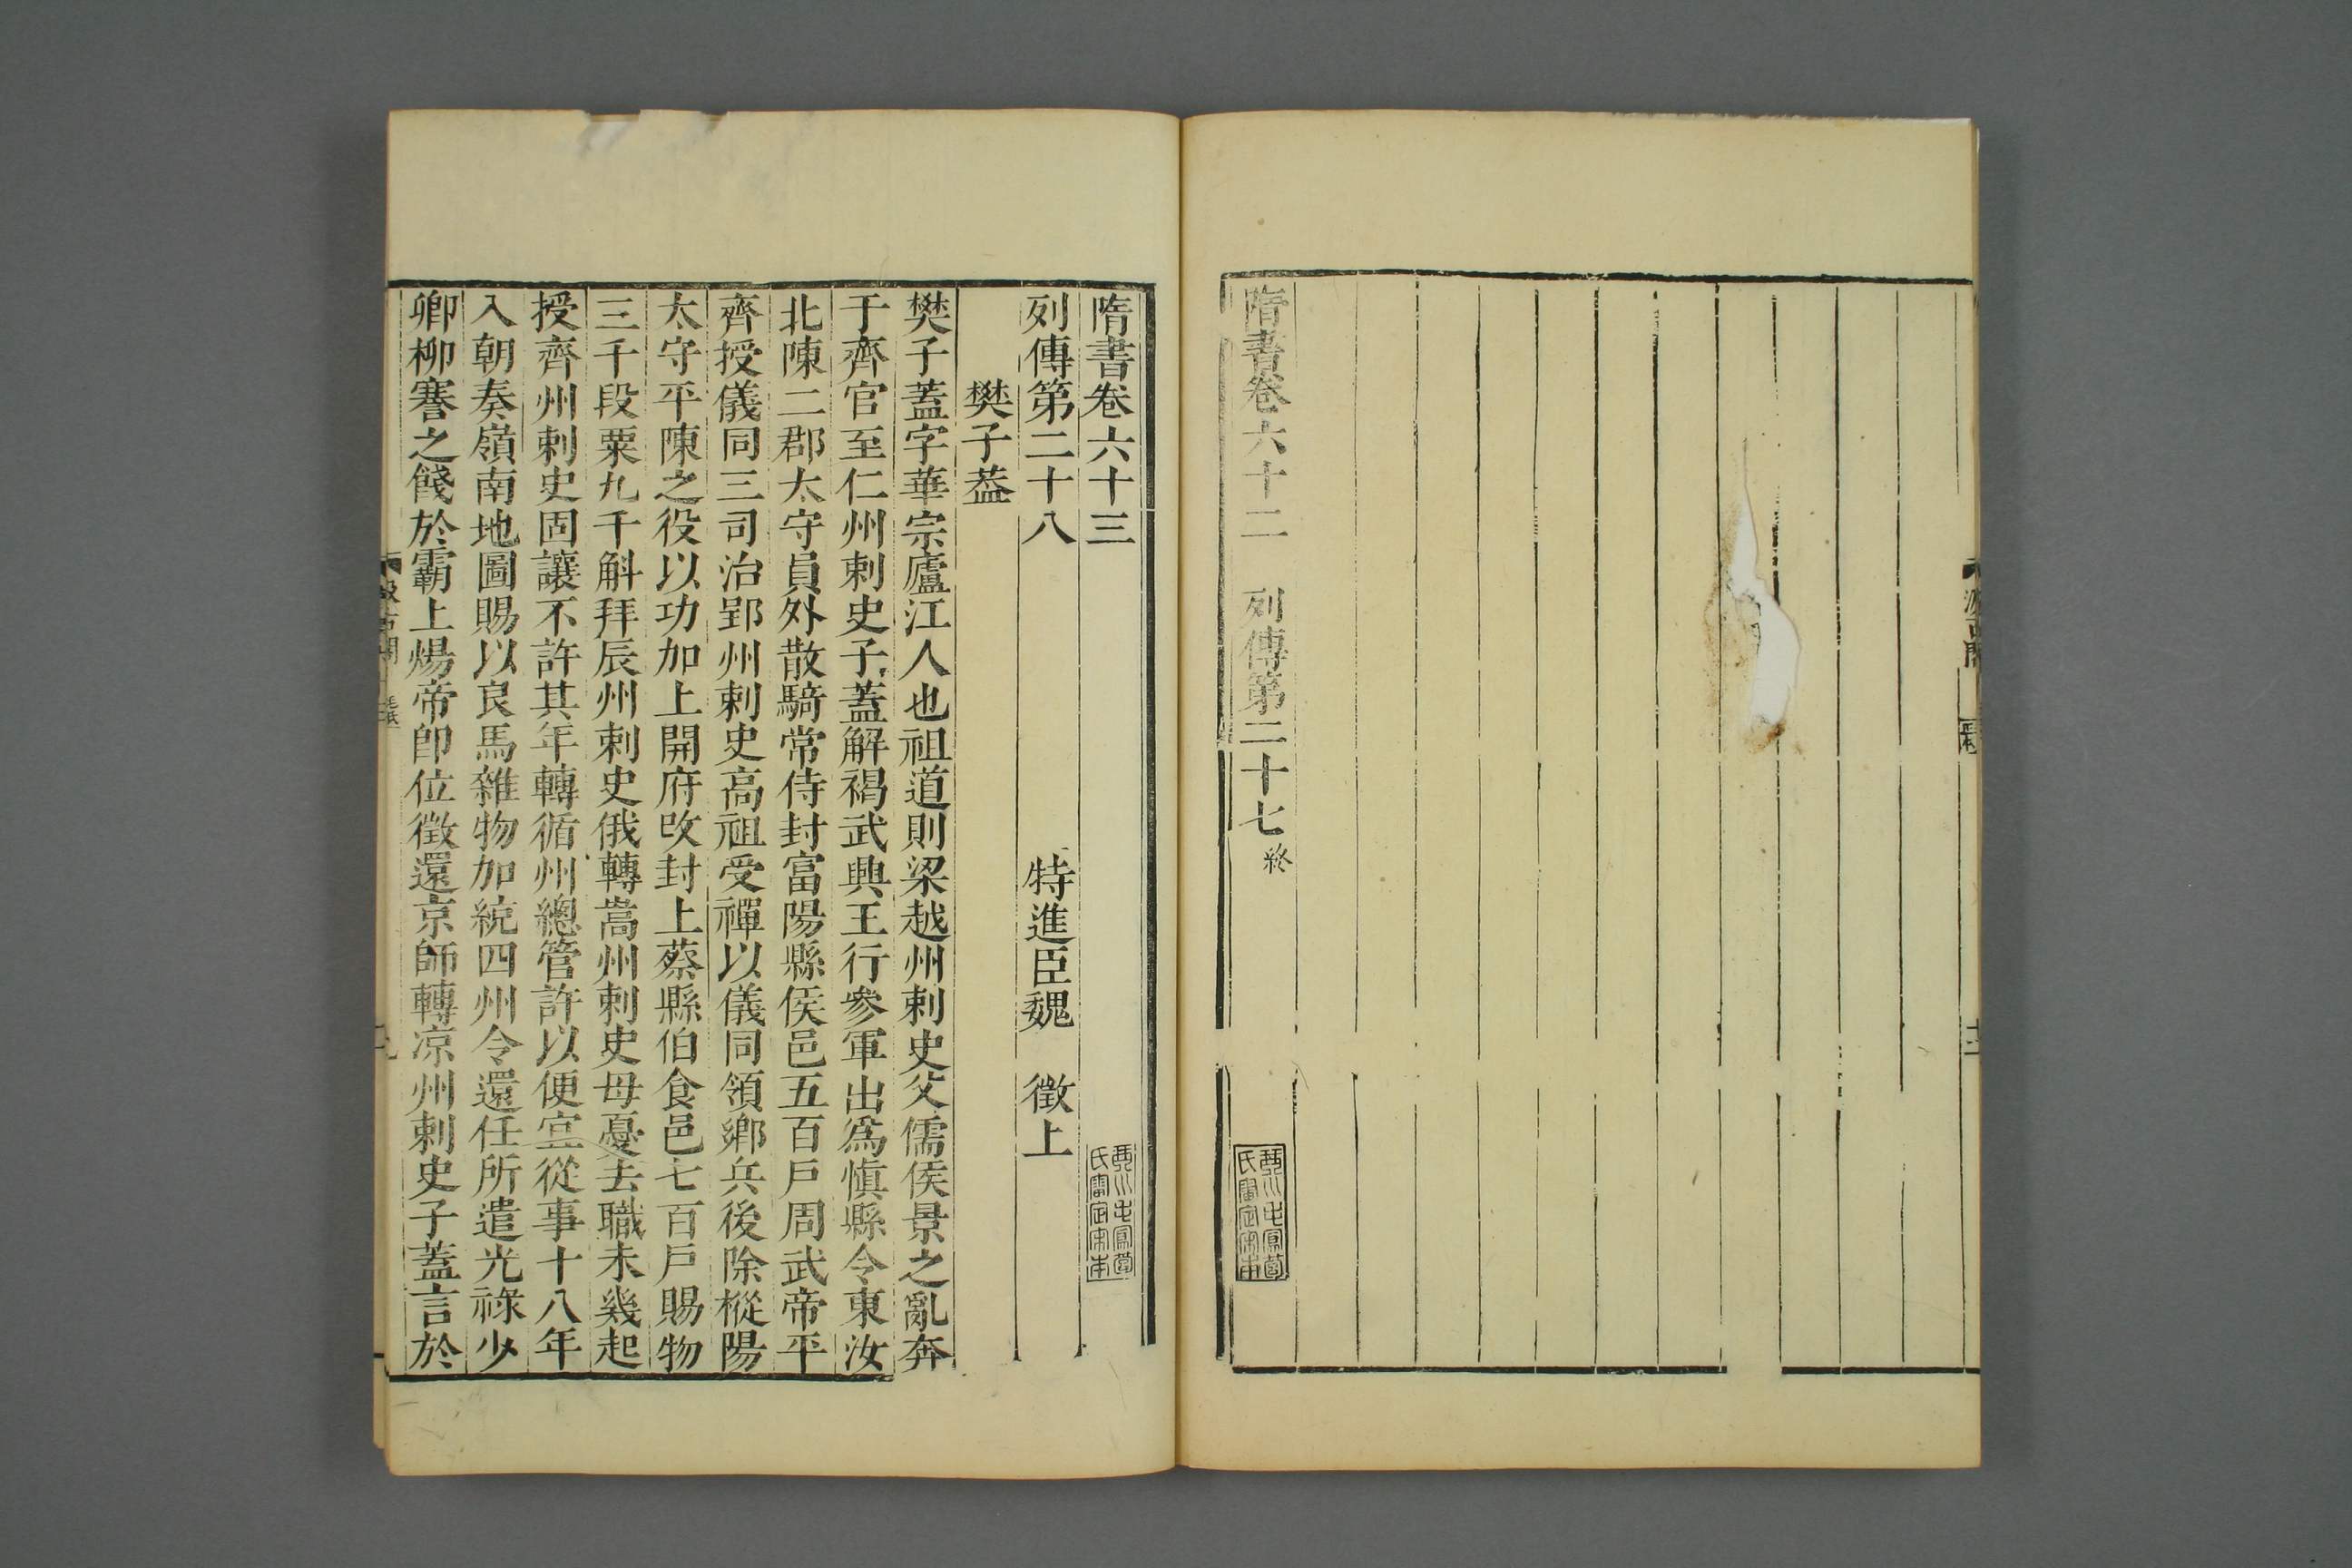 隋書卷六十二　列傳第二十七終
隋書卷六十三
列傳第二十八　特進臣魏　徵上
樊子葢
樊子蓋字華宗廬江人也祖道則梁越州刺史父儒侯景之亂奔
于齊官至仁州刺史子蓋解褐武興王行參軍出爲慎縣令東汝
北陳二郡太守員外散騎常侍封富陽縣侯邑五百戶周武帝平
齊授儀同三司治郢州刺史高祖受禪以儀同領鄉兵後除樅陽
太守平陳之役以功加上開府改封上蔡縣伯食邑七百戶賜物
三千段粟九千斛拜辰州刺史俄轉嵩州刺史母憂去職未幾起
授齊州刺史固讓不許其年轉循州總管許以便宜從事十八年
入朝奏嶺南地圖賜以良馬雜物加統四州令還任所遣光祿少
卿柳謇之餞於霸上煬帝卽位徵還京師轉凉州刺史子蓋言於